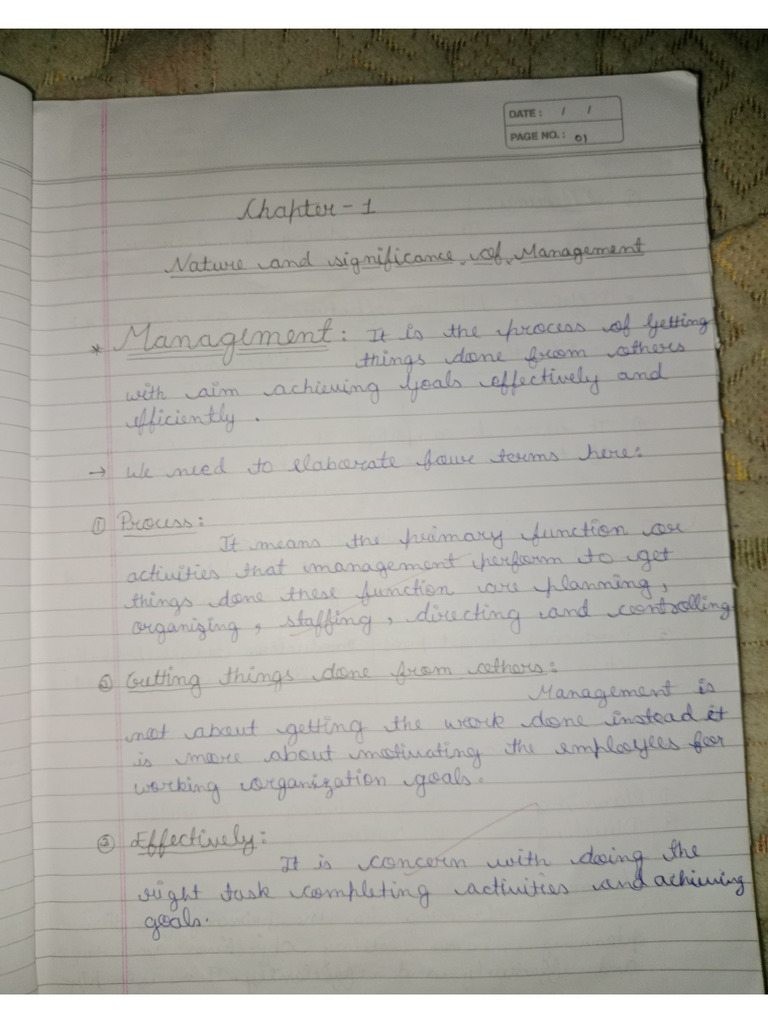 DATE: / /
PAGE NO.: 01
Chapter - 1
Nature and significance of Management
* Management: It is the process of Getting
things done from others
with aim achieving goals effectively and
efficiently.
→ We need to elaborate four terms here:
① Process:
It means the primary function or
activities that management perform to get
things done these function are planning,
organizing, staffing, directing and controlling
② Getting things done from others:
Management is
not about getting the work done instead it
is more about motivating the employees for
working organization goals.
③ Effectively:
It is concern with doing the
right task completing activities and achieving
goals.